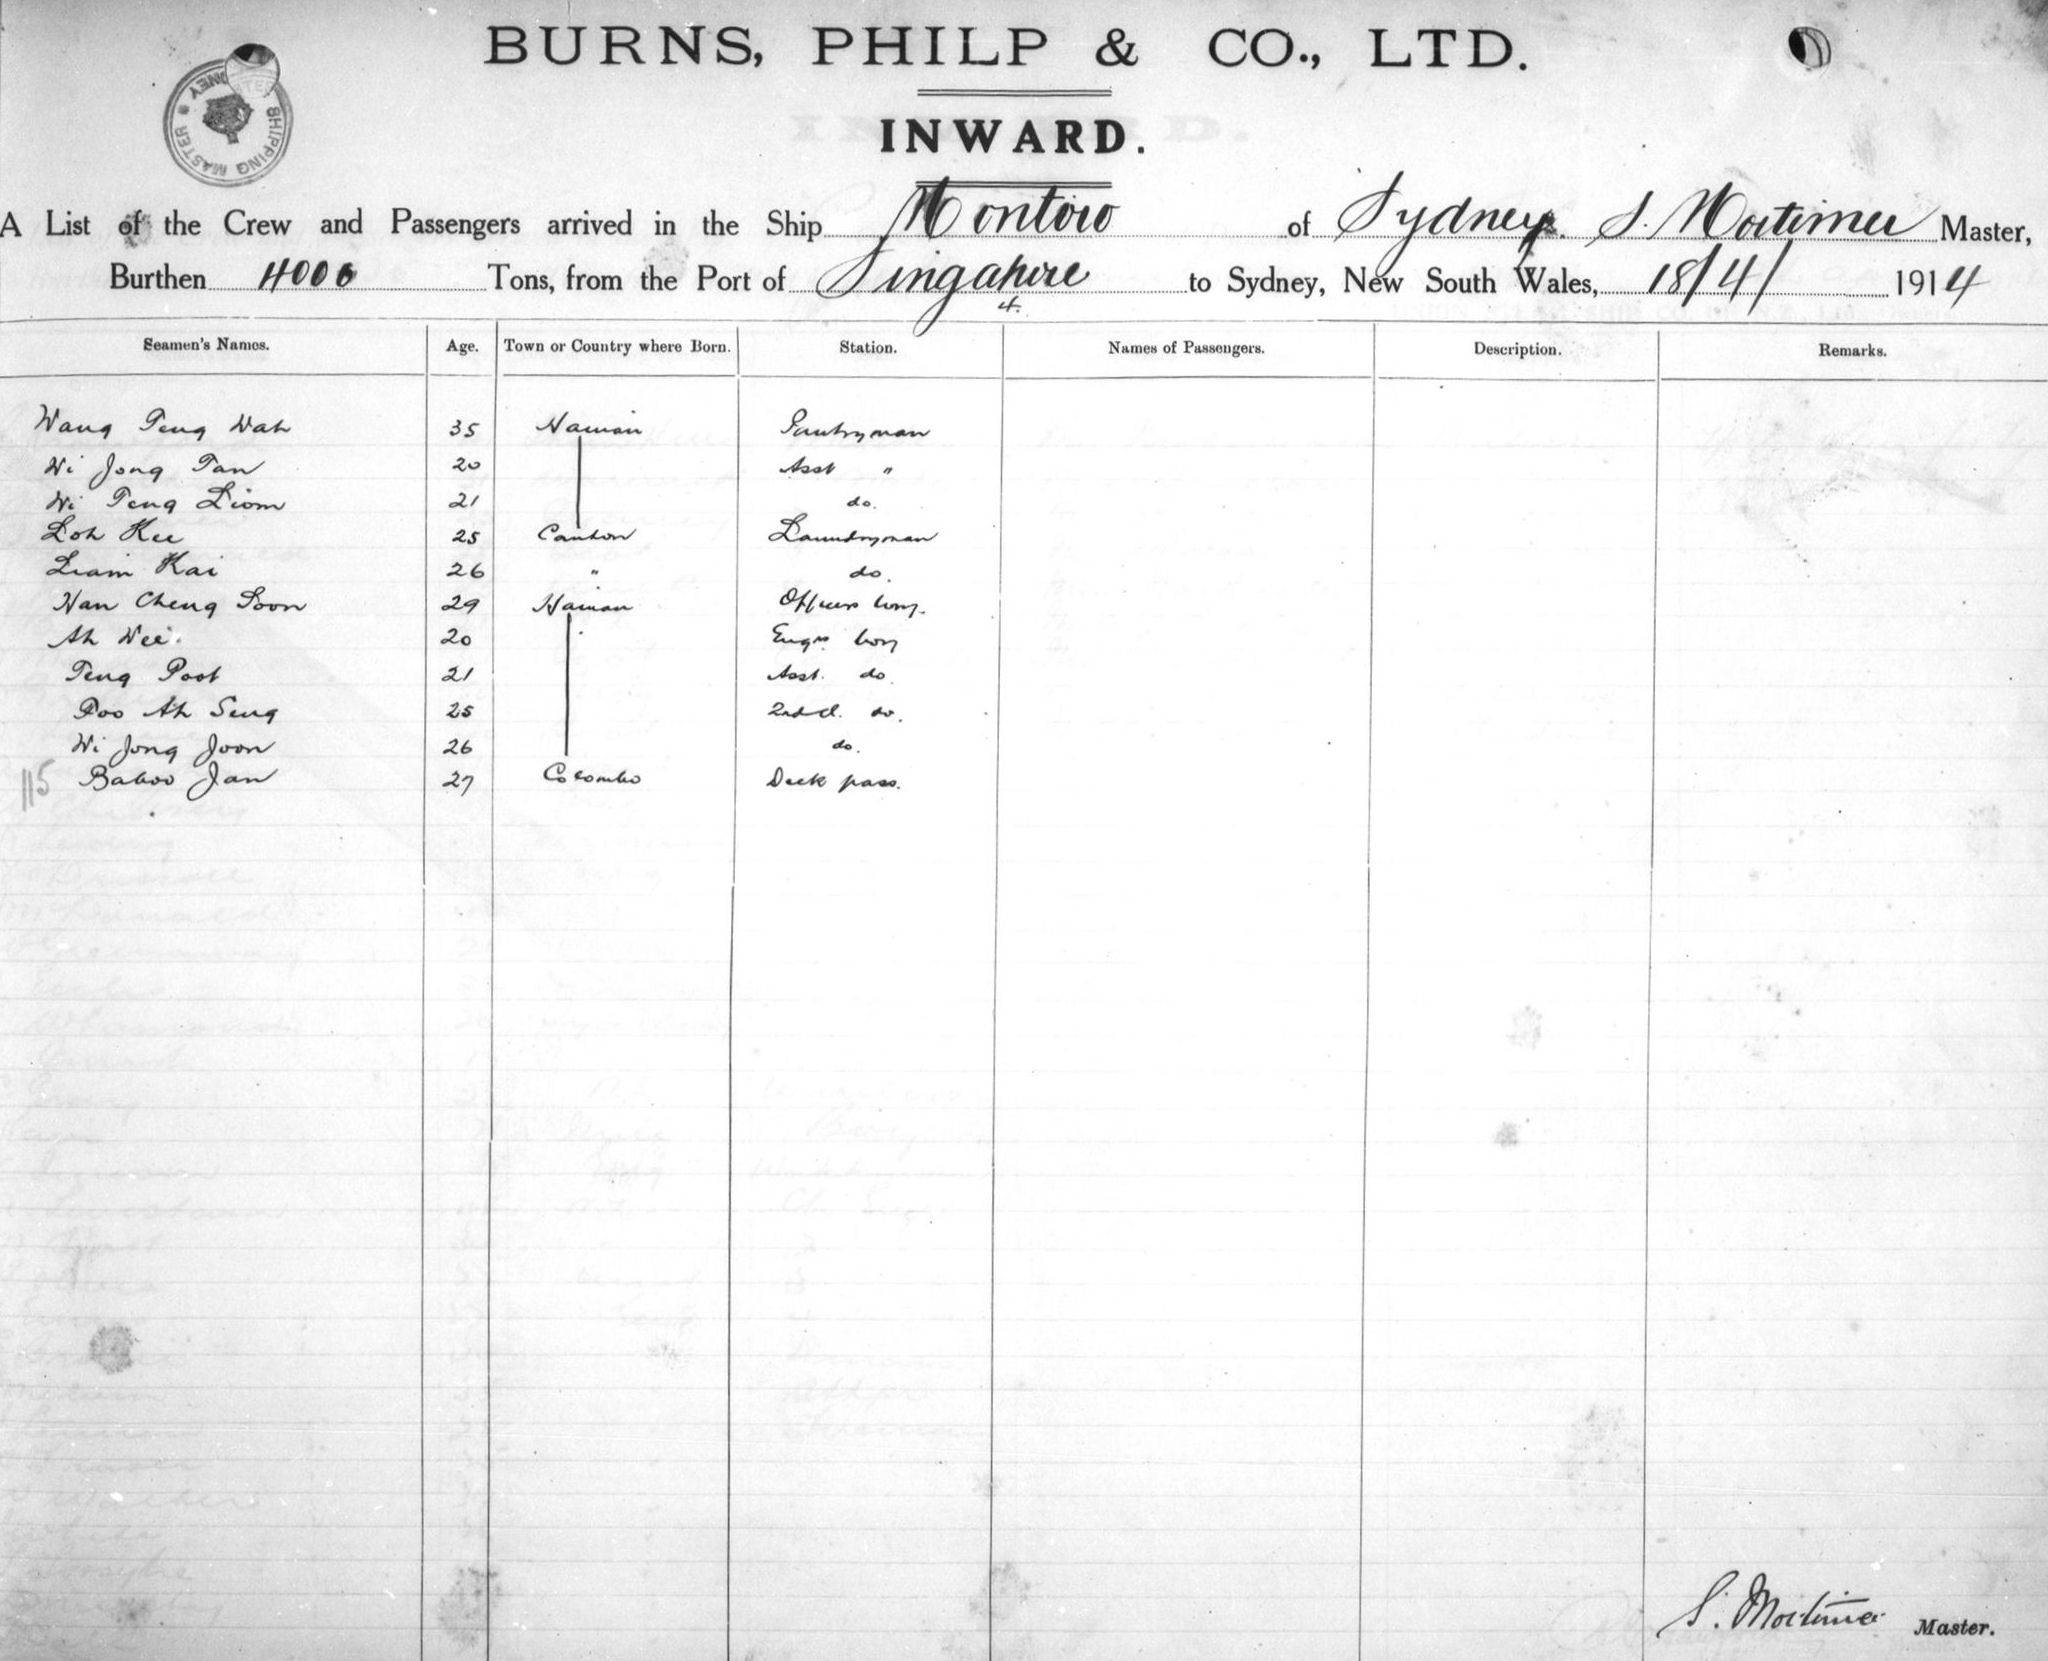 BURNS, PHILP & CO., LTD.
SHIPPING MASTER * SYDNEY *
INWARD.
A List of the Crew and Passengers arrived in the Ship Montoro of Sydney. S. Mortimer Master,
Burthen 4000 Tons, from the Port of Singapore to Sydney, New South Wales, 18/4/ 1914
4.
Seamen's Names. Age. Town or Country where Born. Station. Names of Passengers. Description. Remarks.
Wang Teng Wah 35 Hainan Pantryman
Wi Jong Tan 20 Asst "
Wi Teng Liom 21 do.
Loh Kee 25 Canton Laundryman
Liam Kai 26 " do.
Han Cheng Soon 29 Hainan Officers boy.
Ah Wee 20 Engrs. boy
Teng Poot 21 Asst. do.
Poo Ah Seng 25 2nd cl. do.
Wi Jong Joon 26 do.
115 Baboo Jan 27 Colombo Deck pass.
S. Mortimer Master.